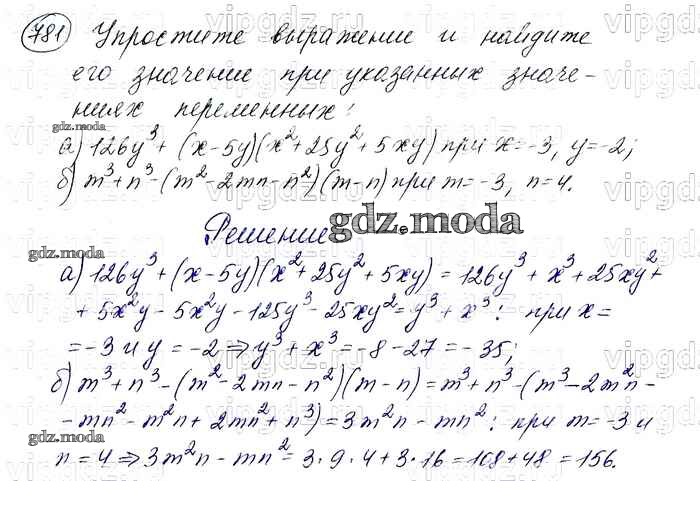 781 Упростите выражение и найдите
его значение при указанных значе-
ниях переменных:
gdz.moda
а) 126y³ + (x-5y)(x²+25y²+5xy) при x=-3, y=-2;
б) m³+n³-(m²-2mn-n²)(m-n) при m=-3, n=4.
Решение
gdz.moda
gdz.moda
а) 126y³+(x-5y)(x²+25y²+5xy) = 126y³ + x³+25xy²+
+ 5x²y - 5x²y - 125y³ - 25xy² = y³ + x³: при x=
= -3 и y = -2 ⇒ y³ + x³ = -8 - 27 = -35;
б) m³+n³-(m²-2mn-n²)(m-n) = m³+n³-(m³-2m²n-
-mn²-m²n+2mn²+n³) = 3m²n - mn²: при m=-3 и
gdz.moda
n = 4 ⇒ 3m²n - mn² = 3·9·4+3·16 = 108+48 = 156.
vipgdz.ru